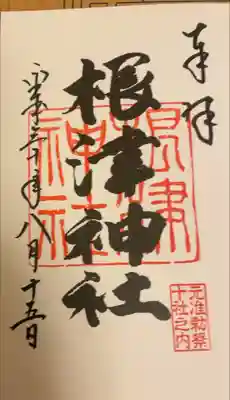 奉拝
根津神社
根津神社
元准勅祭
十社之内
平成三十年八月十五日